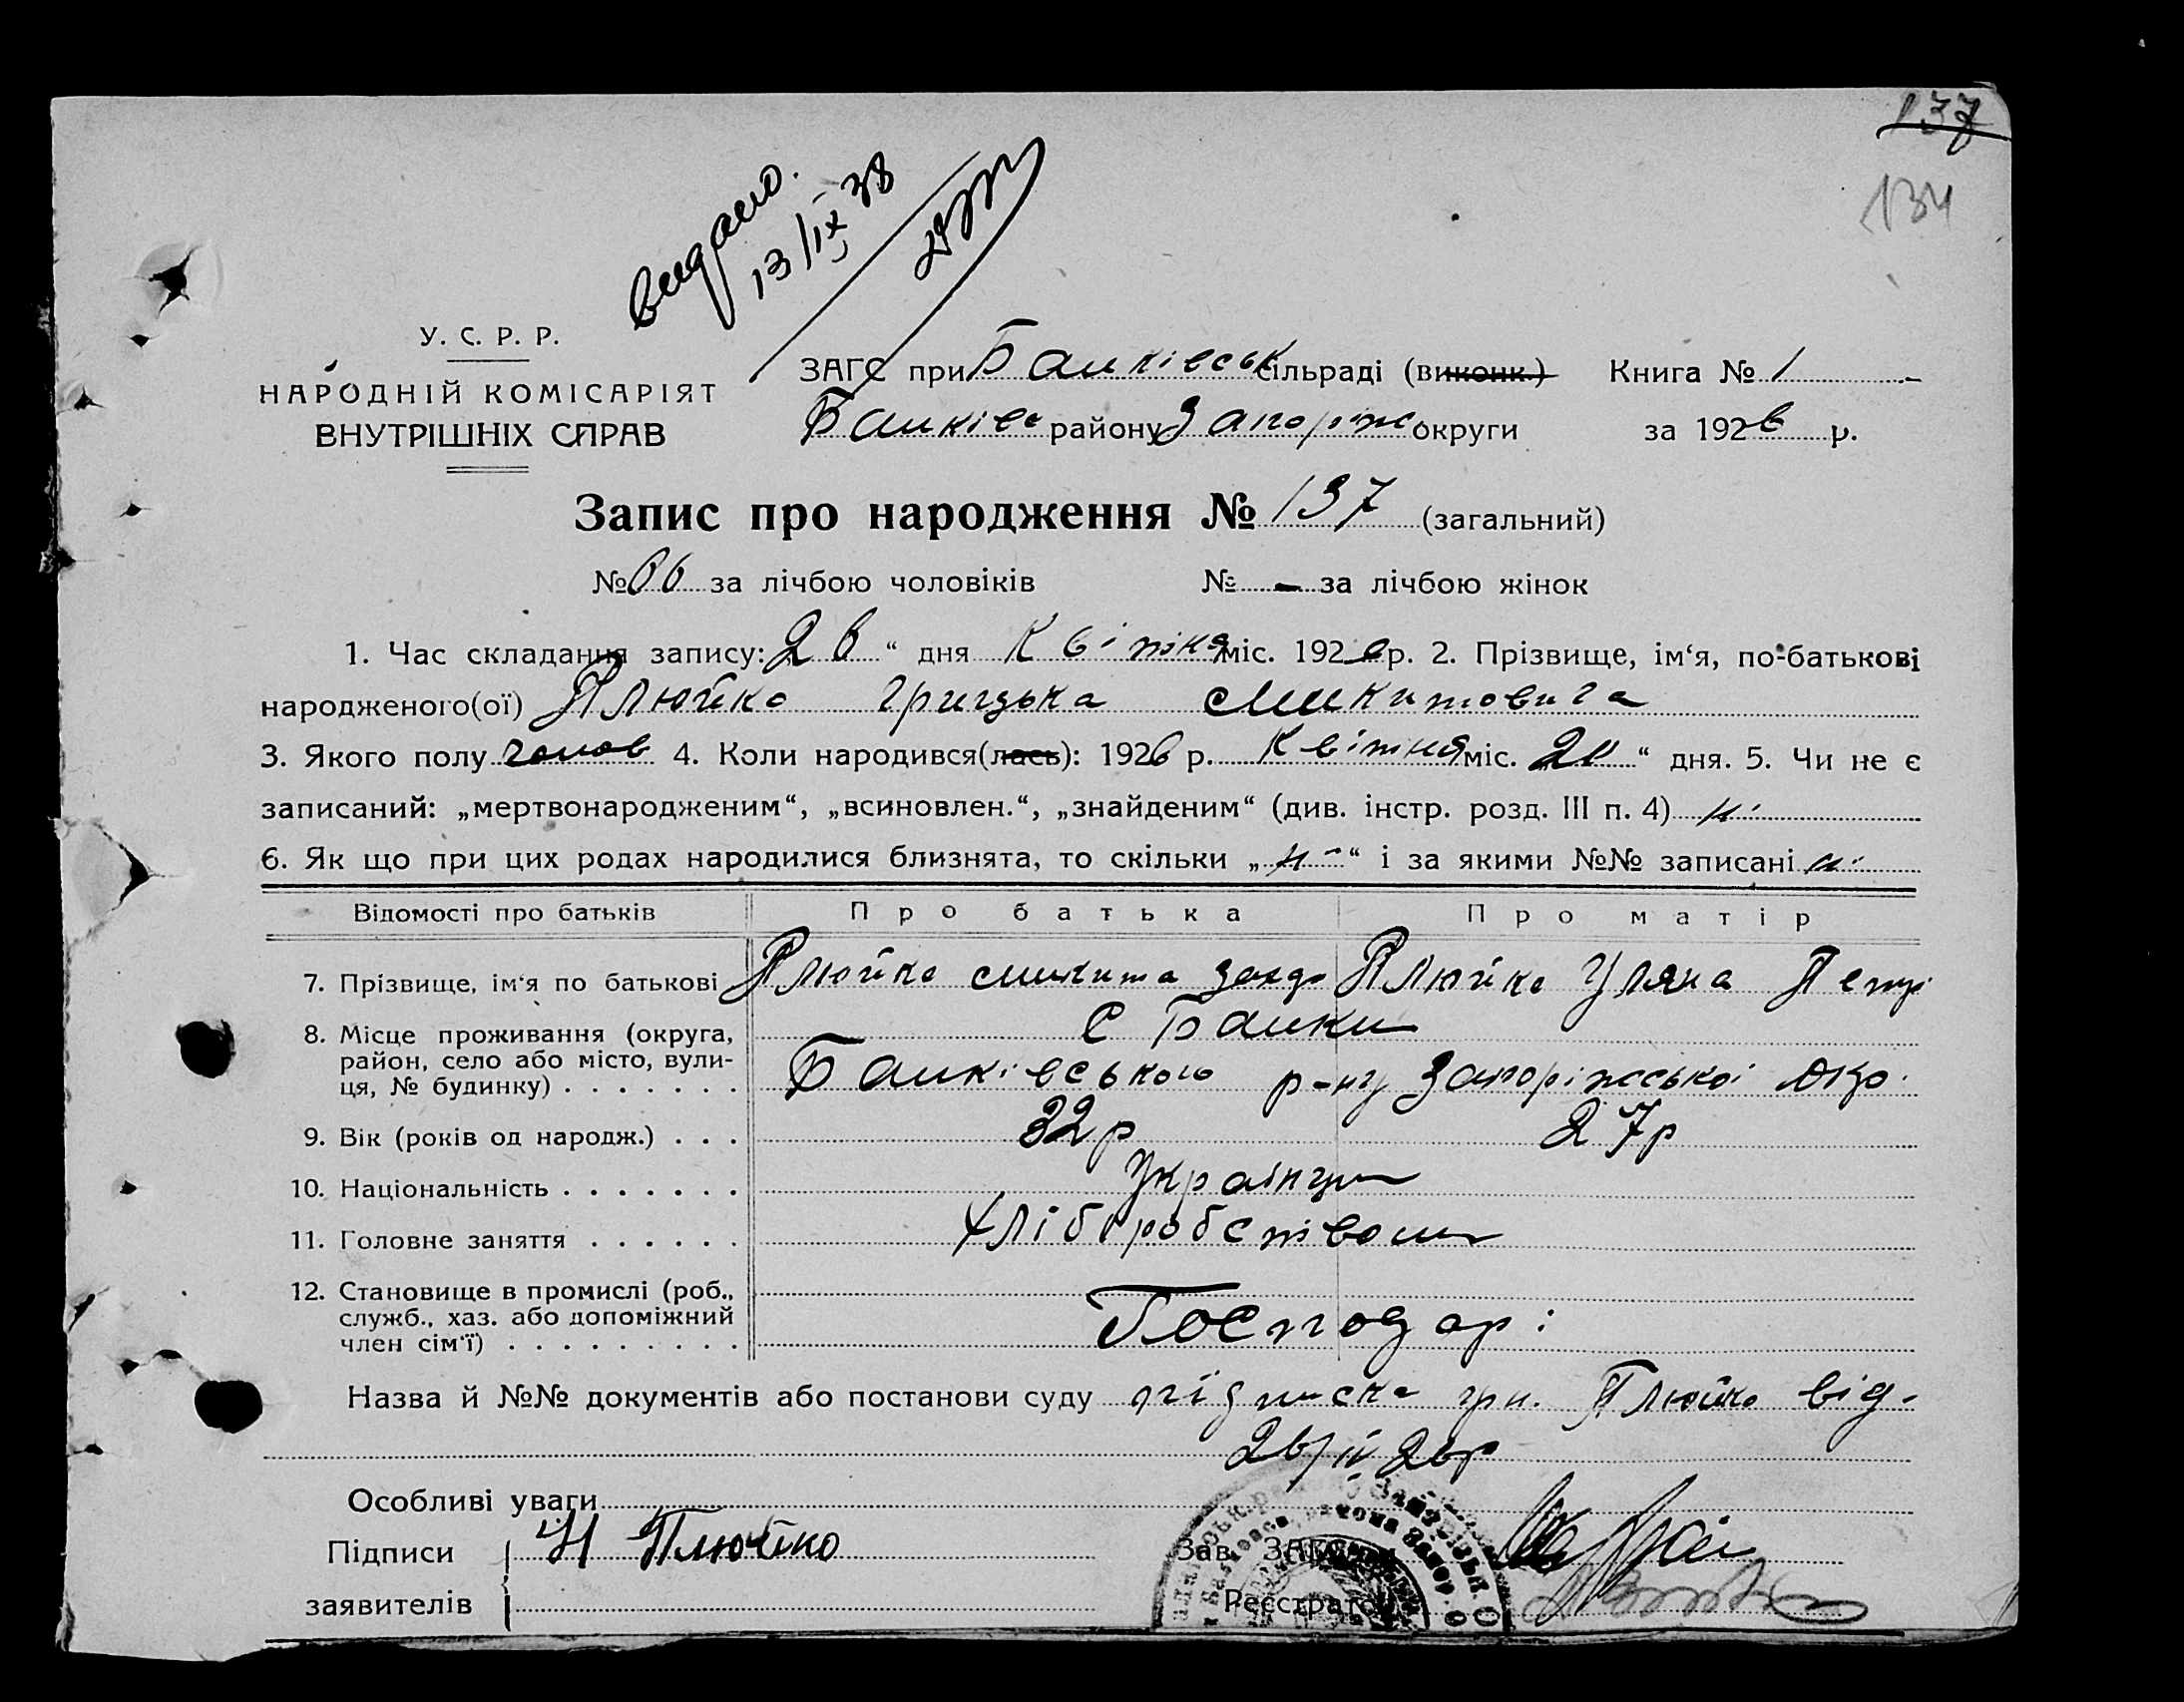 137
134
видано.
13/IX 38
У. С. Р. Р.
НАРОДНІЙ КОМІСАРІЯТ
ВНУТРІШНІХ СПРАВ
ЗАГС при Балківськ сільраді (виконк.) Книга № 1
Балків району Запоріж округи за 1926 р.
Запис про народження № 137 (загальний)
№ 66 за лічбою чоловіків № - за лічбою жінок
1. Час складання запису: 26 “ дня Квітня міс. 1926 р. 2. Прізвище, ім‘я, по-батькові
народженого(ої) Плюйко Грицька Микитовича
3. Якого полу чолов 4. Коли народився(лась): 1926 р. Квітня міс. “ дня. 5. Чи не є
записаний: „мертвонародженим“, „всиновлен.“, „знайденим“ (див. інстр. розд. III п. 4) ні
6. Як що при цих родах народилися близнята, то скільки „ ні “ і за якими №№ записані ні
Відомості про батьків Про батька Про матір
7. Прізвище, ім‘я по батькові Плюйко Микита Плюйко Уляна Петрі
8. Місце проживання (округа, район, село або місто, вулиця, № будинку) . . . . . . . С Балки
Балківського р-ну Запоріжської окр.
9. Вік (років од народж.) . . . 32 р 27 р
10. Національність . . . . . . . Українци
11. Головне заняття . . . . . . Хліборобством
12. Становище в промислі (роб., служб., хаз. або допоміжний член сім‘ї) . . . . . . . . . Господарі
Назва й №№ документів або постанови суду підписка гр н. Плюйко від
26/IV 26р
Особливі уваги
Підписи Н Плюйко Зав. ЗАГС
заявителів Реєстратор